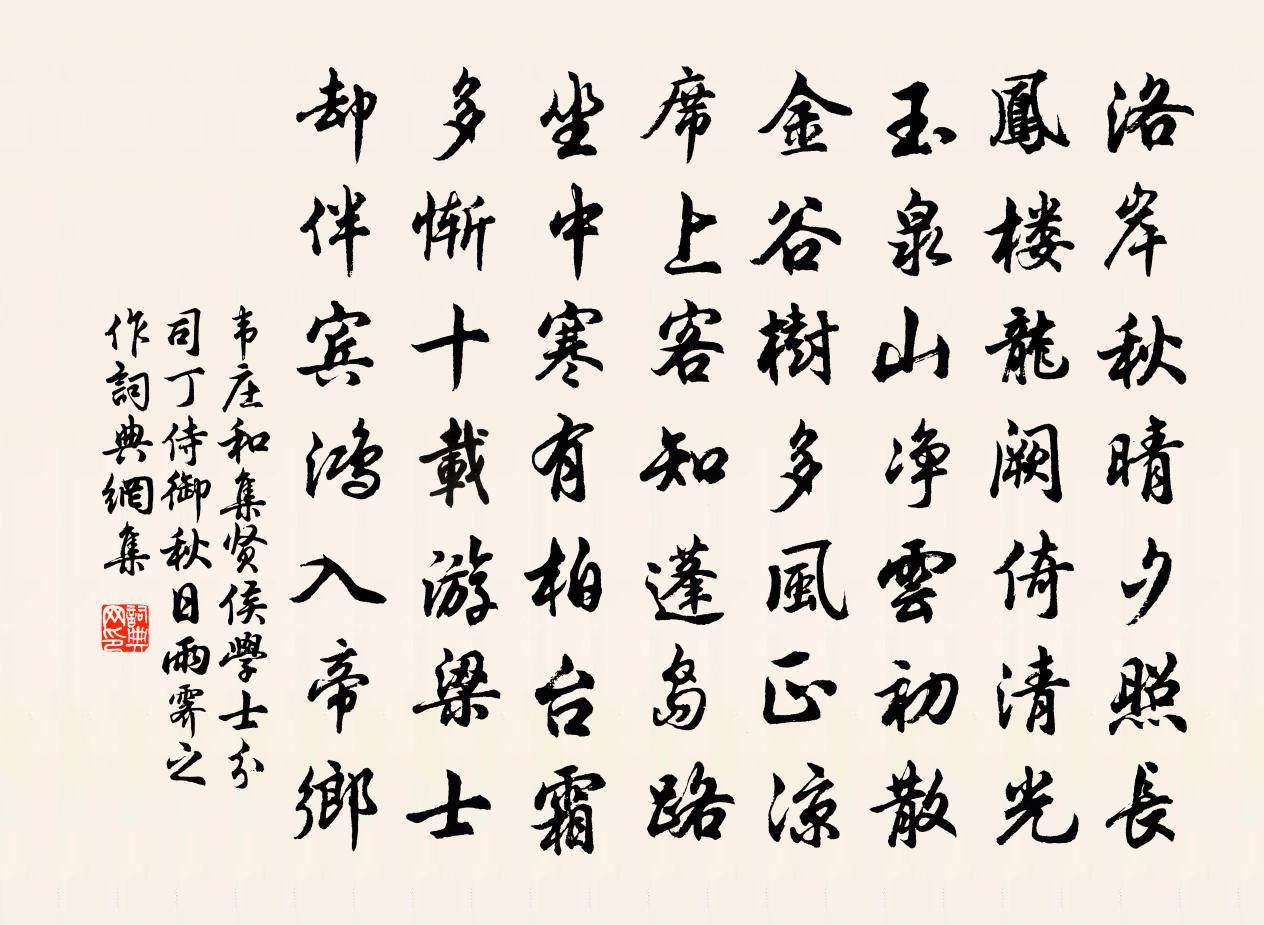 洛岸秋晴夕照長
鳳楼龍闕倚清光
玉泉山净雲初散
金谷樹多風正涼
席上客知蓬島路
坐中寒有柏台霜
多慚十載游梁士
却伴宾鴻入帝鄉
韦庄和集贤侯學士分
司丁侍御秋日雨霽之
作詞典網集
詞典网印